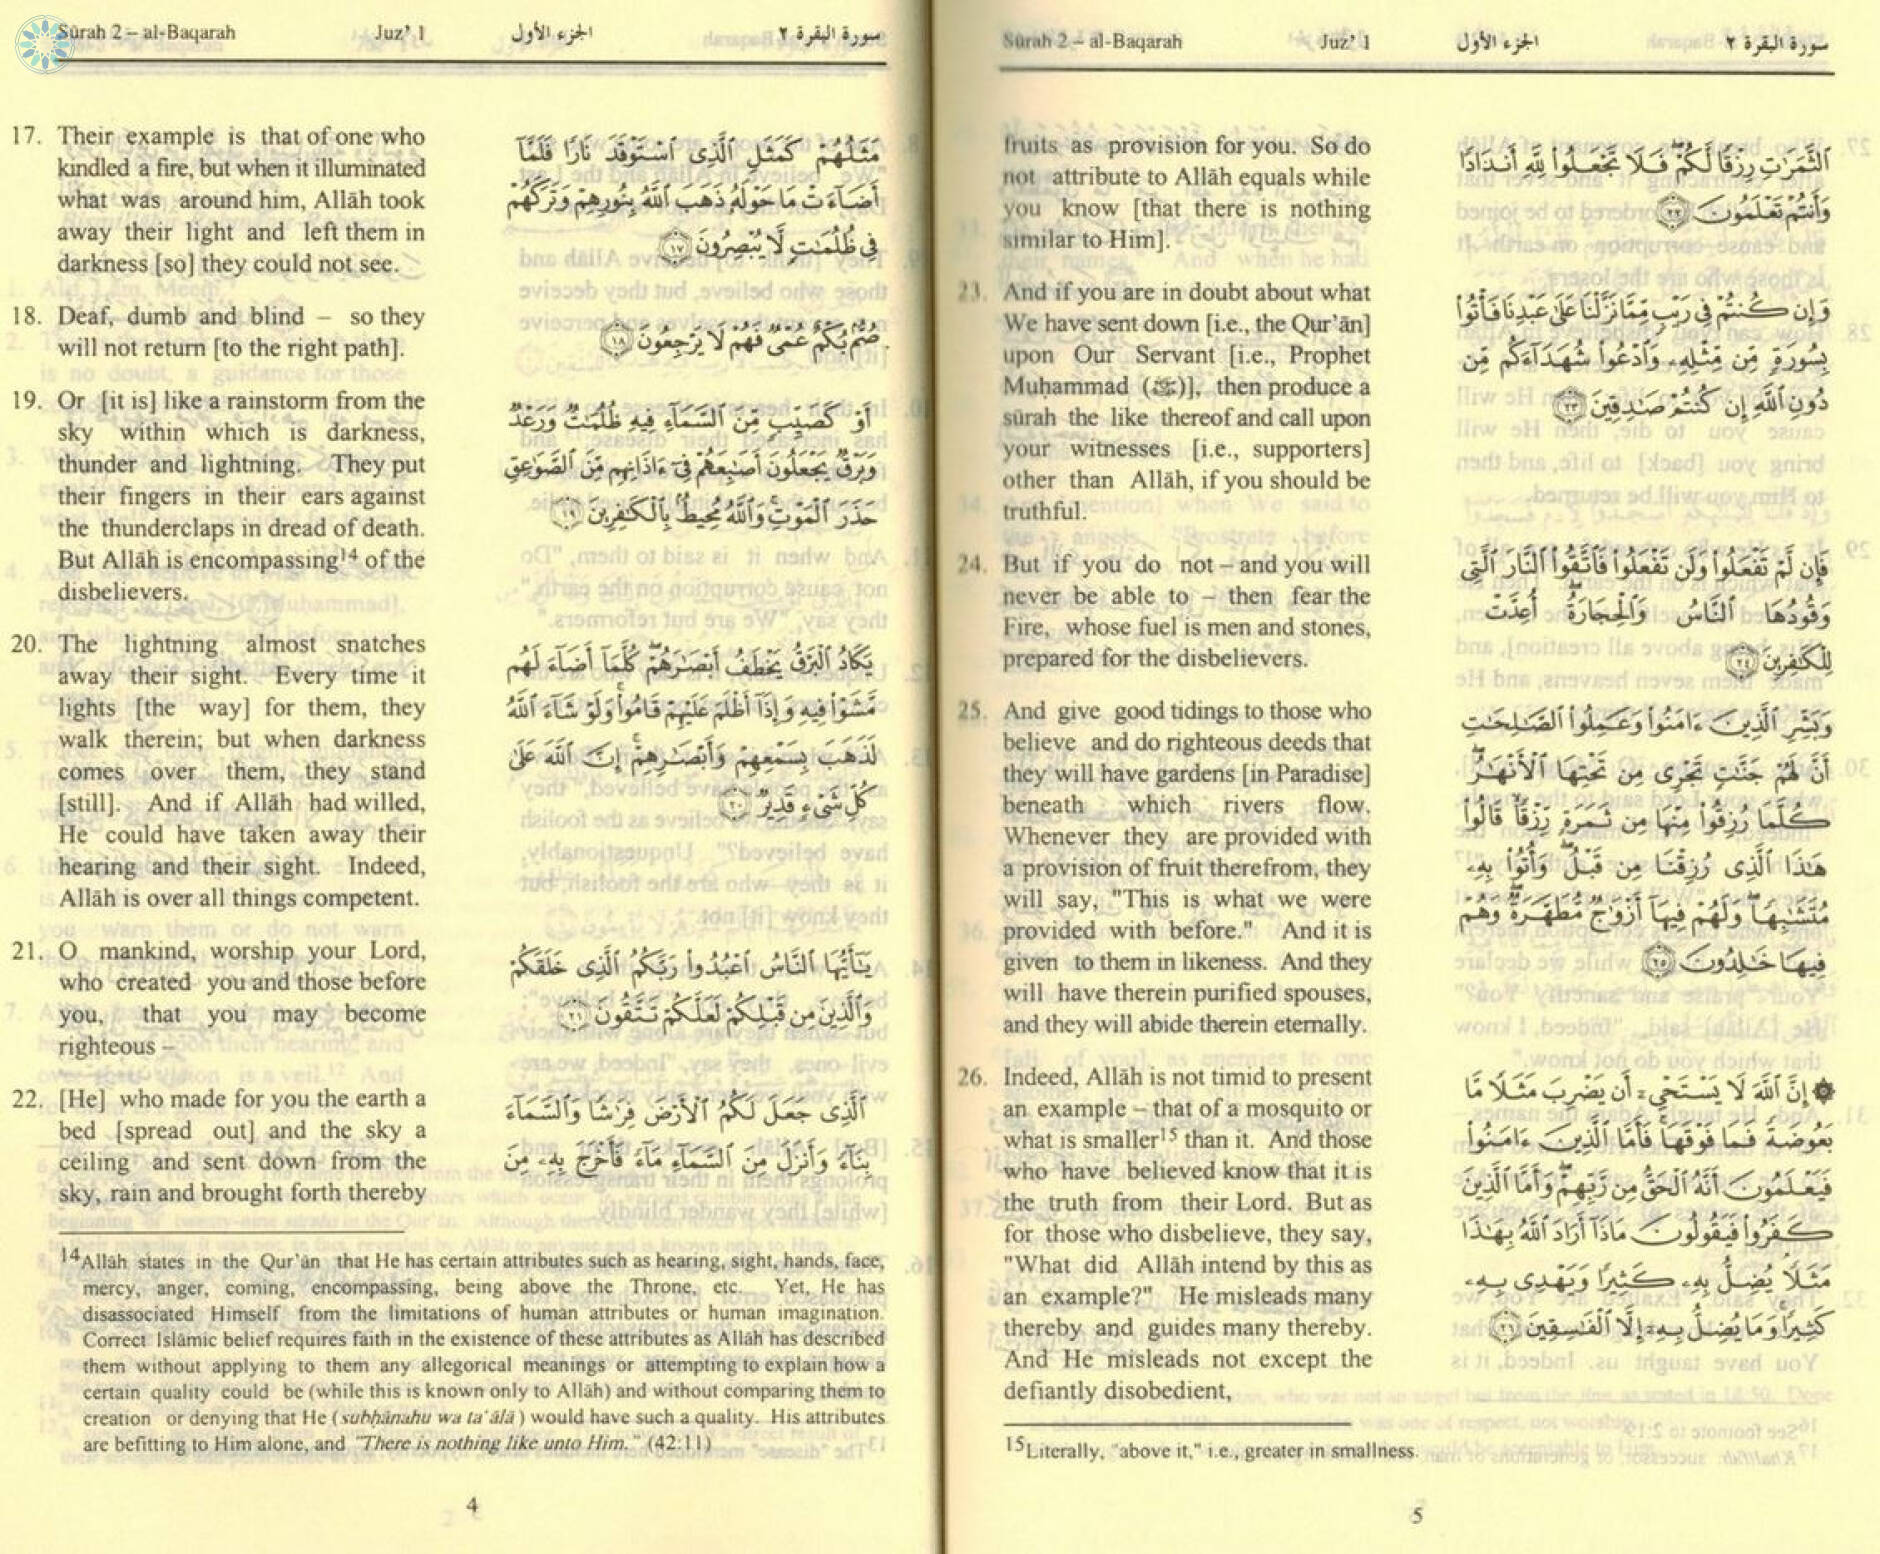 Sūrah 2 – al-Baqarah Juz' 1 الجزء الأول سورة البقرة ٢
17. Their example is that of one who
kindled a fire, but when it illuminated
what was around him, Allāh took
away their light and left them in
darkness [so] they could not see.
مَثَلُهُمْ كَمَثَلِ ٱلَّذِى ٱسْتَوْقَدَ نَارًا فَلَمَّآ
أَضَآءَتْ مَا حَوْلَهُۥ ذَهَبَ ٱللَّهُ بِنُورِهِمْ وَتَرَكَهُمْ
فِى ظُلُمَٰتٍ لَّا يُبْصِرُونَ ١٧
18. Deaf, dumb and blind – so they
will not return [to the right path].
صُمٌّۢ بُكْمٌ عُمْىٌ فَهُمْ لَا يَرْجِعُونَ ١٨
19. Or [it is] like a rainstorm from the
sky within which is darkness,
thunder and lightning. They put
their fingers in their ears against
the thunderclaps in dread of death.
But Allāh is encompassing¹⁴ of the
disbelievers.
أَوْ كَصَيِّبٍ مِّنَ ٱلسَّمَآءِ فِيهِ ظُلُمَٰتٌ وَرَعْدٌ
وَبَرْقٌ يَجْعَلُونَ أَصَٰبِعَهُمْ فِىٓ ءَاذَانِهِم مِّنَ ٱلصَّوَٰعِقِ
حَذَرَ ٱلْمَوْتِ وَٱللَّهُ مُحِيطٌۢ بِٱلْكَٰفِرِينَ ١٩
20. The lightning almost snatches
away their sight. Every time it
lights [the way] for them, they
walk therein; but when darkness
comes over them, they stand
[still]. And if Allāh had willed,
He could have taken away their
hearing and their sight. Indeed,
Allāh is over all things competent.
يَكَادُ ٱلْبَرْقُ يَخْطَفُ أَبْصَٰرَهُمْ كُلَّمَآ أَضَآءَ لَهُم
مَّشَوْا۟ فِيهِ وَإِذَآ أَظْلَمَ عَلَيْهِمْ قَامُوا۟ وَلَوْ شَآءَ ٱللَّهُ
لَذَهَبَ بِسَمْعِهِمْ وَأَبْصَٰرِهِمْ إِنَّ ٱللَّهَ عَلَىٰ
كُلِّ شَىْءٍ قَدِيرٌ ٢٠
21. O mankind, worship your Lord,
who created you and those before
you, that you may become
righteous –
يَٰٓأَيُّهَا ٱلنَّاسُ ٱعْبُدُوا۟ رَبَّكُمُ ٱلَّذِى خَلَقَكُمْ
وَٱلَّذِينَ مِن قَبْلِكُمْ لَعَلَّكُمْ تَتَّقُونَ ٢١
22. [He] who made for you the earth a
bed [spread out] and the sky a
ceiling and sent down from the
sky, rain and brought forth thereby
ٱلَّذِى جَعَلَ لَكُمُ ٱلْأَرْضَ فِرَٰشًا وَٱلسَّمَآءَ
بِنَآءً وَأَنزَلَ مِنَ ٱلسَّمَآءِ مَآءً فَأَخْرَجَ بِهِۦ مِنَ
¹⁴Allāh states in the Qur'ān that He has certain attributes such as hearing, sight, hands, face,
mercy, anger, coming, encompassing, being above the Throne, etc. Yet, He has
disassociated Himself from the limitations of human attributes or human imagination.
Correct Islāmic belief requires faith in the existence of these attributes as Allāh has described
them without applying to them any allegorical meanings or attempting to explain how a
certain quality could be (while this is known only to Allāh) and without comparing them to
creation or denying that He (subḥānahu wa ta'ālā) would have such a quality. His attributes
are befitting to Him alone, and "There is nothing like unto Him." (42:11)
4
Sūrah 2 – al-Baqarah Juz' 1 الجزء الأول سورة البقرة ٢
fruits as provision for you. So do
not attribute to Allāh equals while
you know [that there is nothing
similar to Him].
ٱلثَّمَرَٰتِ رِزْقًا لَّكُمْ فَلَا تَجْعَلُوا۟ لِلَّهِ أَندَادًا
وَأَنتُمْ تَعْلَمُونَ ٢٢
23. And if you are in doubt about what
We have sent down [i.e., the Qur'ān]
upon Our Servant [i.e., Prophet
Muḥammad (ﷺ)], then produce a
sūrah the like thereof and call upon
your witnesses [i.e., supporters]
other than Allāh, if you should be
truthful.
وَإِن كُنتُمْ فِى رَيْبٍ مِّمَّا نَزَّلْنَا عَلَىٰ عَبْدِنَا فَأْتُوا۟
بِسُورَةٍ مِّن مِّثْلِهِۦ وَٱدْعُوا۟ شُهَدَآءَكُم مِّن
دُونِ ٱللَّهِ إِن كُنتُمْ صَٰدِقِينَ ٢٣
24. But if you do not – and you will
never be able to – then fear the
Fire, whose fuel is men and stones,
prepared for the disbelievers.
فَإِن لَّمْ تَفْعَلُوا۟ وَلَن تَفْعَلُوا۟ فَٱتَّقُوا۟ ٱلنَّارَ ٱلَّتِى
وَقُودُهَا ٱلنَّاسُ وَٱلْحِجَارَةُ أُعِدَّتْ
لِلْكَٰفِرِينَ ٢٤
25. And give good tidings to those who
believe and do righteous deeds that
they will have gardens [in Paradise]
beneath which rivers flow.
Whenever they are provided with
a provision of fruit therefrom, they
will say, "This is what we were
provided with before." And it is
given to them in likeness. And they
will have therein purified spouses,
and they will abide therein eternally.
وَبَشِّرِ ٱلَّذِينَ ءَامَنُوا۟ وَعَمِلُوا۟ ٱلصَّٰلِحَٰتِ
أَنَّ لَهُمْ جَنَّٰتٍ تَجْرِى مِن تَحْتِهَا ٱلْأَنْهَٰرُ
كُلَّمَا رُزِقُوا۟ مِنْهَا مِن ثَمَرَةٍ رِّزْقًا قَالُوا۟
هَٰذَا ٱلَّذِى رُزِقْنَا مِن قَبْلُ وَأُتُوا۟ بِهِۦ
مُتَشَٰبِهًا وَلَهُمْ فِيهَآ أَزْوَٰجٌ مُّطَهَّرَةٌ وَهُمْ
فِيهَا خَٰلِدُونَ ٢٥
26. Indeed, Allāh is not timid to present
an example – that of a mosquito or
what is smaller¹⁵ than it. And those
who have believed know that it is
the truth from their Lord. But as
for those who disbelieve, they say,
"What did Allāh intend by this as
an example?" He misleads many
thereby and guides many thereby.
And He misleads not except the
defiantly disobedient,
۞ إِنَّ ٱللَّهَ لَا يَسْتَحْىِۦٓ أَن يَضْرِبَ مَثَلًا مَّا
بَعُوضَةً فَمَا فَوْقَهَا فَأَمَّا ٱلَّذِينَ ءَامَنُوا۟
فَيَعْلَمُونَ أَنَّهُ ٱلْحَقُّ مِن رَّبِّهِمْ وَأَمَّا ٱلَّذِينَ
كَفَرُوا۟ فَيَقُولُونَ مَاذَآ أَرَادَ ٱللَّهُ بِهَٰذَا
مَثَلًا يُضِلُّ بِهِۦ كَثِيرًا وَيَهْدِى بِهِۦ
كَثِيرًا وَمَا يُضِلُّ بِهِۦٓ إِلَّا ٱلْفَٰسِقِينَ ٢٦
¹⁵Literally, "above it," i.e., greater in smallness.
5